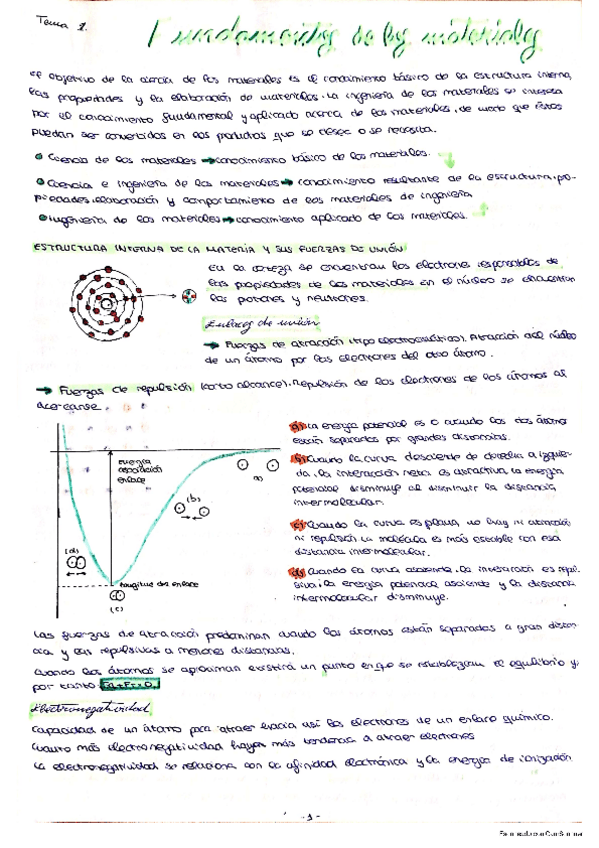 Tema 1.
Fundamentos de los materiales
El objetivo de la ciencia de los materiales es el conocimiento básico de la estructura interna,
las propiedades y la elaboración de materiales. La ingeniería de los materiales se interesa
por el conocimiento fundamental y aplicado acerca de los materiales, de modo que éstos
puedan ser convertidos en los productos que se desee o se necesita.
Ciencia de los materiales → conocimiento básico de los materiales.
Ciencia e ingeniería de los materiales → conocimiento resultante de la estructura, pro-
piedades, elaboración y comportamiento de los materiales de ingeniería
Ingeniería de los materiales → conocimiento aplicado de los materiales.
ESTRUCTURA INTERNA DE LA MATERIA Y SUS FUERZAS DE UNIÓN
En la corteza se encuentran los electrones responsables de
las propiedades de los materiales en el núcleo se encuentran
los protones y neutrones.
Enlaces de unión
→ Fuerzas de atracción (tipo electrostático). Atracción del núcleo
de un átomo por los electrones del otro átomo.
→ Fuerzas de repulsión (corto alcance). Repulsión de los electrones de los átomos al
acercarse.
energía
disociación
enlace
(a)
(b)
(d)
longitud del enlace
(c)
a) La energía potencial es 0 cuando los dos átomos
están separados por grandes distancias.
b) Cuando la curva desciende de derecha a izquier-
da, la interacción neta es atractiva, la energía
potencial disminuye al disminuir la distancia
intermolecular.
c) Cuando la curva es plana, no hay ni atracción
ni repulsión la molécula es más estable con esa
distancia intermolecular.
d) Cuando la curva asciende, la interacción es repul-
siva, la energía potencial asciende y la distancia
intermolecular disminuye.
Las fuerzas de atracción predominan cuando los átomos están separados a gran distan-
cia y las repulsivas a menores distancias.
Cuando los átomos se aproximan existirá un punto en que se establezcan el equilibrio y,
por tanto Fa+Fr=0.
Electronegatividad
Capacidad de un átomo para atraer hacia así los electrones de un enlace químico.
Cuanto más electronegatividad hayan más tendencia a atraer electrones
La electronegatividad se relaciona con la afinidad electrónica y la energía de ionización
-1-
Escaneado con CamScanner